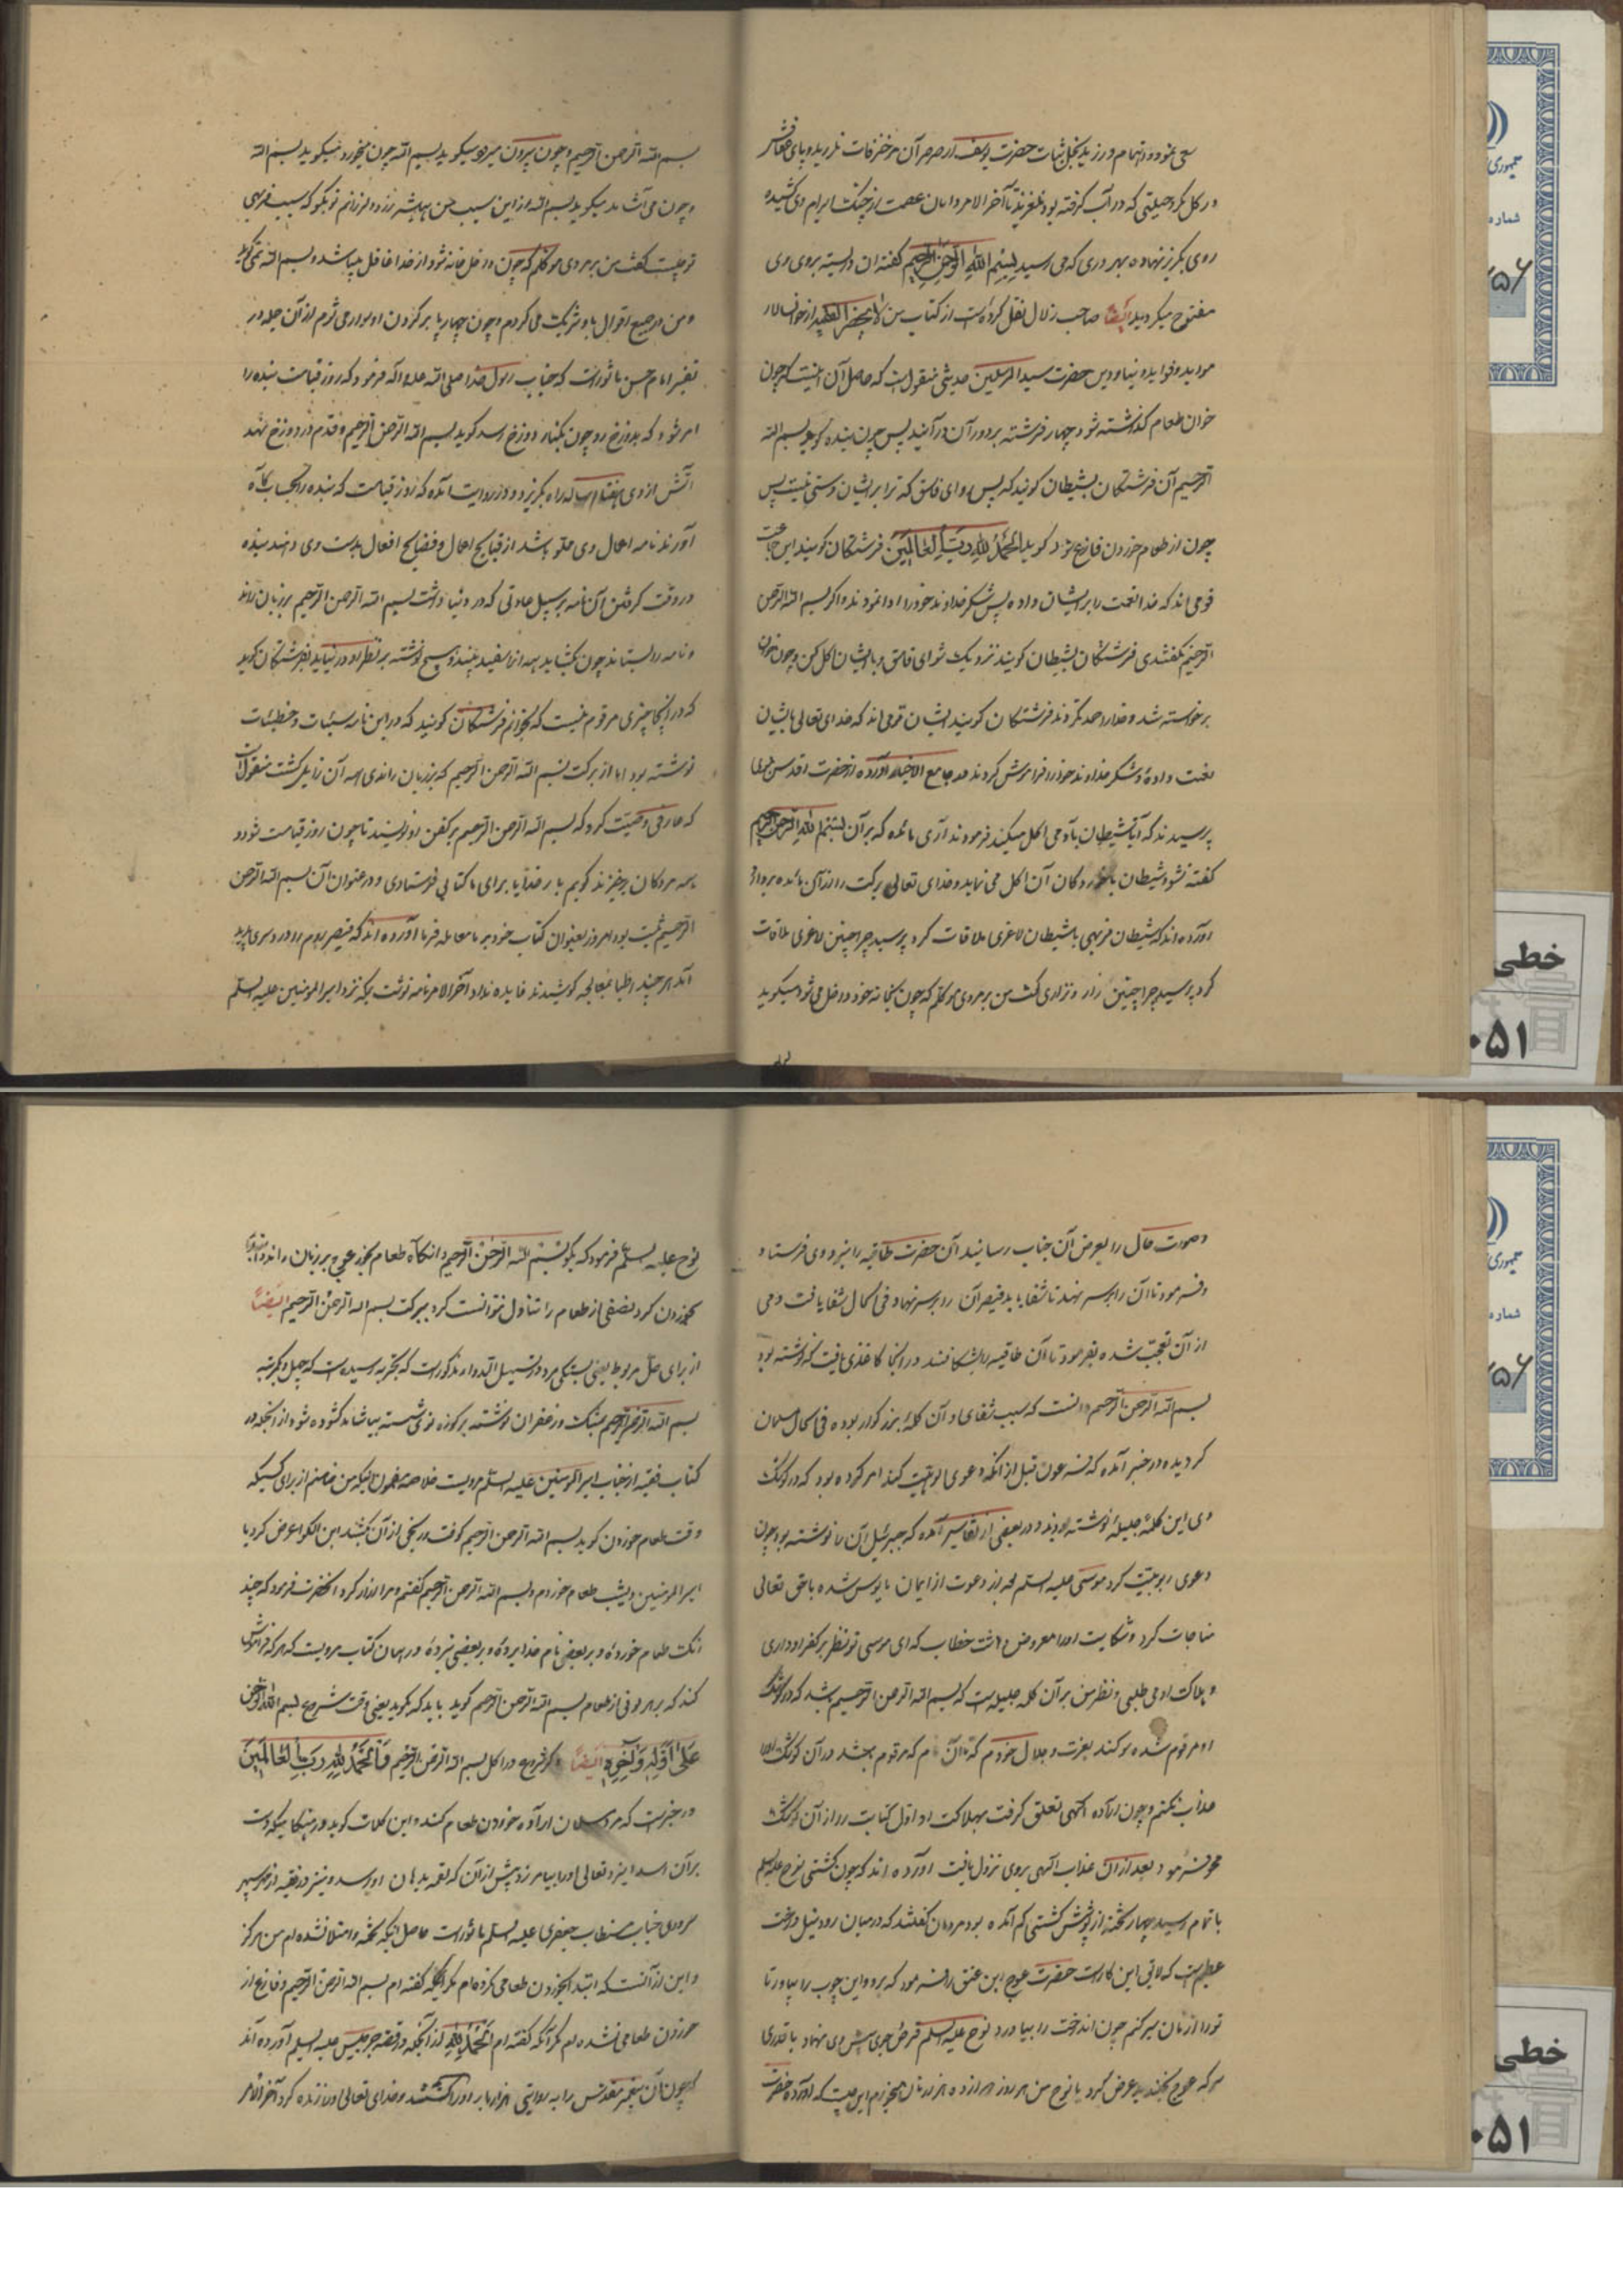 سعی نموده و اهتمام ورزید لیکن جبل ثبات حضرت یوسف از صرصر آن مزخرفات نلرزید و پای وقارش
در کل مکر و حیلتی که در آب گرفته بود نلغزید تا آخر الامر دامان عصمت از چنگ ابرام وی کشیده
روی بگریز نهاده بهر دری که می رسید بسم الله الرحمن الرحیم گفته آن در بسته بروی وی
مفتوح میگردید ایضا صاحب زلال نقل کرده است از کتاب من لا یحضر الفقیه از خوانسالار
مواید و فواید دنیا و دین حضرت سید المرسلین حدیثی منقول است که حاصل آن اینست که چون
خوان طعام گذاشته شود چهار فرشته بر دور آن در آیند پس چون بنده گوید بسم الله
الرحیم آن فرشتگان بشیطان گویند که پس رو ای فاسق که ترا بر ایشان دستی نیست پس
چون از طعام خوردن فارغ شود گوید الحمد لله رب العالمین فرشتگان گویند این جماعت
قومی اند که خدا نعمت را بر ایشان داده پس شکر خداوند خود را ادا نمودند و اگر بسم الله الرحمن
الرحیم نگفتندی فرشتگان بشیطان گویند نزدیک شو ای فاسق و با ایشان اکل کن و چون خوان
برخواسته شد و خدا را حمد نکردند فرشتگان گویند ایشان قومی اند که خدای تعالی بایشان
نعمت داده و شکر خداوند خود را فراموش کردند در جامع الاخبار آورده از حضرت اقدس نبوی
پرسیدند که آیا شیطان با آدمی اکل میکند فرمودند آری مائده که بر آن بسم الله الرحمن الرحیم
گفته نشود شیطان با خورندگان آن اکل می نماید و خدای تعالی برکت را از آن مائده بردارد
آورده اند که شیطان فربهی با شیطان لاغری ملاقات کرد پرسید چرا چنین لاغری ملاقات
کرد پرسید چرا چنین زار و نزاری گفت من بر مردی موکلم که چون بخانه خود داخل می شود میگوید
بسم الله الرحمن الرحیم و چون بیرون میرود میگوید بسم الله چون میخورد میگوید بسم الله
و چون می آشامد میگوید بسم الله از این سبب من همیشه نزد او لرزانم تو بگو که سبب فربهی
تو چیست گفت من بر مردی موکلم که چون داخل خانه شود از خدا غافل میباشد و بسم الله نمی گوید
و من در جمیع اقوال با او شریک می گردم و چون چهارپا بر گردن او سوار می شوم از آن جمله در
تفسیر امام حسن ماثور است که جناب رسول خدا صلی الله علیه و آله فرمود که روز قیامت بنده را
امر شود که بدوزخ رود چون بکنار دوزخ رسد گوید بسم الله الرحمن الرحیم و قدم در دوزخ نهد
آتش از وی هفتاد ساله راه بگریزد و در روایت آمده که روز قیامت که بنده را بحساب گاه
آورند نامه اعمال وی مملو باشد از قبایح اعمال و فضایح افعال بدست وی دهند بنده
در وقت گرفتن آن نامه بر سبیل عادتی که در دنیا داشت بسم الله الرحمن الرحیم بر زبان راند
و نامه را بستاند چون بگشاید همه آن را سفید بیند و هیچ نوشته بنظر او در نیاید بفرشتگان گوید
که در اینجا چیزی مرقوم نیست که بخوانم فرشتگان گویند که در این نامه سیئات و خطیئات
نوشته بود اما از برکت بسم الله الرحمن الرحیم که بزبان راندی همه آن زایل گشت منقول است
که عارفی وصیت کرد که بسم الله الرحمن الرحیم بر کفن او نویسند تا چون روز قیامت شود و
همه مردگان برخیزند گویم بار خدایا برای ما کتابی فرستادی و در عنوان آن بسم الله الرحمن
الرحیم ثبت بود امروز بعنوان کتاب خود بر ما معامله فرما آورده اند که قیصر روم را درد سری پدید
آمد هر چند اطبا بمعالجه کوشیدند فایده نداد آخر الامر نامه نوشت بنزد امیر المومنین علیه السلم
و صورت حال را بعرض آن جناب رسانید آن حضرت طاقیه را بنزد وی فرستاد
و فرمود تا آن را بر سر نهد تا شفا یابد قیصر آن را بر سر نهاد و فی الحال شفا یافت و می
از آن تعجب شده بفرمود تا آن طاقیه را بشکافند در آنجا کاغذی یافت که نوشته بود
بسم الله الرحمن الرحیم دانست که سبب شفای او آن کلمه بزرگوار بوده فی الحال مسلمان
گردیده در خبر آمده که فرعون قبل از آنکه دعوی الوهیت کند امر کرده بود که در کوشک
وی این کلمه جلیله نوشته بودند و در بعضی از تفاسیر آمده که جبرئیل آن را نوشته بود چون
دعوی ربوبیت کرد موسی علیه السلم بعد از دعوت از ایمان مایوس شده با حق تعالی
مناجات کرد و شکایت او را معروض داشت خطاب که ای موسی تو نظر بر کفر او داری
و هلاکت او می طلبی و نظر من بر آن کلمه جلیله است که بسم الله الرحمن الرحیم باشد که در کوشک
او مرقوم شده سوگند بعزت و جلال خودم که تا آن نام که مرقوم باشد در آن کوشک او را
عذاب نکنم و چون اراده الهی تعلق گرفت بهلاکت او اول کتابت را از آن کوشک
محو فرمود بعد از آن عذاب الهی بروی نزول یافت آورده اند که چون کشتی نوح علیه السلم
باتمام رسید چهار تخته از پوشش کشتی کم آمده بود مردمان گفتند که در میان رود نیل درخت
عظیم است که لایق این کار است حضرت عوج ابن عنق را فرمود که برو و این چوب را بیاور تا
تو را از نان سیر کنم چون آن درخت را بیاورد نوح علیه السلم قرص جوی پیش وی نهاد با قدری
سرکه عوج بخندید عرض کرد یا نوح من هر روز دوازده هزار نان میخورم این چیست که آورده حضرت
نوح علیه السلم فرمود که بگو بسم الله الرحمن الرحیم و آنگاه طعام بخور عوج بر زبان راند و شروع
بخوردن کرد نصفی از طعام را تناول نتوانست کرد ببرکت بسم الله الرحمن الرحیم ایضا
از برای حل مربوط یعنی بستگی مرد در تسهیل الدواء مذکور است که بتجربه رسیده است که چهل و یک مرتبه
بسم الله الرحمن الرحیم بمشک و زعفران نوشته بر کوزه نو شسته بیاشامد گشوده شود از آنجمله در
کتاب فقیه از جناب امیر المومنین علیه السلم مرویست خلاصه مضمون اینکه من ضامنم از برای کسیکه
وقت طعام خوردن گوید بسم الله الرحمن الرحیم کوفت و رنجی از آن نکشد ابن الکوا عرض کرد یا
امیر المومنین دیشب طعام خوردم و بسم الله الرحمن الرحیم گفتم و مرا آزار کرد آنحضرت فرمود که چند
رنگ طعام خورده و بر بعضی نام خدا برده و بر بعضی نبرده و در همان کتاب مرویست که هر که فراموش
کند که بر هر لونی از طعام بسم الله الرحمن الرحیم گوید باید که بگوید یعنی وقت شروع بسم الله الرحمن
علی اوله و آخره ایضا ذکر شروع در اکل بسم الله الرحمن الرحیم فالحمد لله رب العالمین
در خبر است که مرد مسلمان اراده خوردن طعام کند و این کلمات گوید در هنگامیکه دست
برآن رسد ایزد تعالی او را بیامرزد پیش از آن که لقمه بدهان او رسد و نیز در فقیه از مهر سپهر
سروری جناب مستطاب جعفری علیه السلم ماثور است حاصل اینکه تخمه و امتلا نشده ام من هرگز
و این از آنست که ابتدا بخوردن طعامی نکرده ام مگر اینکه گفته ام بسم الله الرحمن الرحیم و فارغ از
خوردن طعامی نشده ام مگر آنکه گفته ام الحمد لله از آنجمله در قصه جرجیس علیه السلم آورده اند
که چون آن پیغمبر مقدس را به روایتی هزار بار او را کشتند و خدای تعالی او را زنده کرد آخر الامر
جمهوری
شماره
خطی
۰۵۱
جمهوری
شماره
خطی
۰۵۱